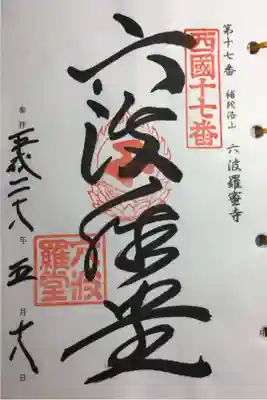 第十七番 補陀洛山 六波羅蜜寺
西國十七番
六波羅堂
六波羅堂
参拝 平成二十八年 五月 十八日